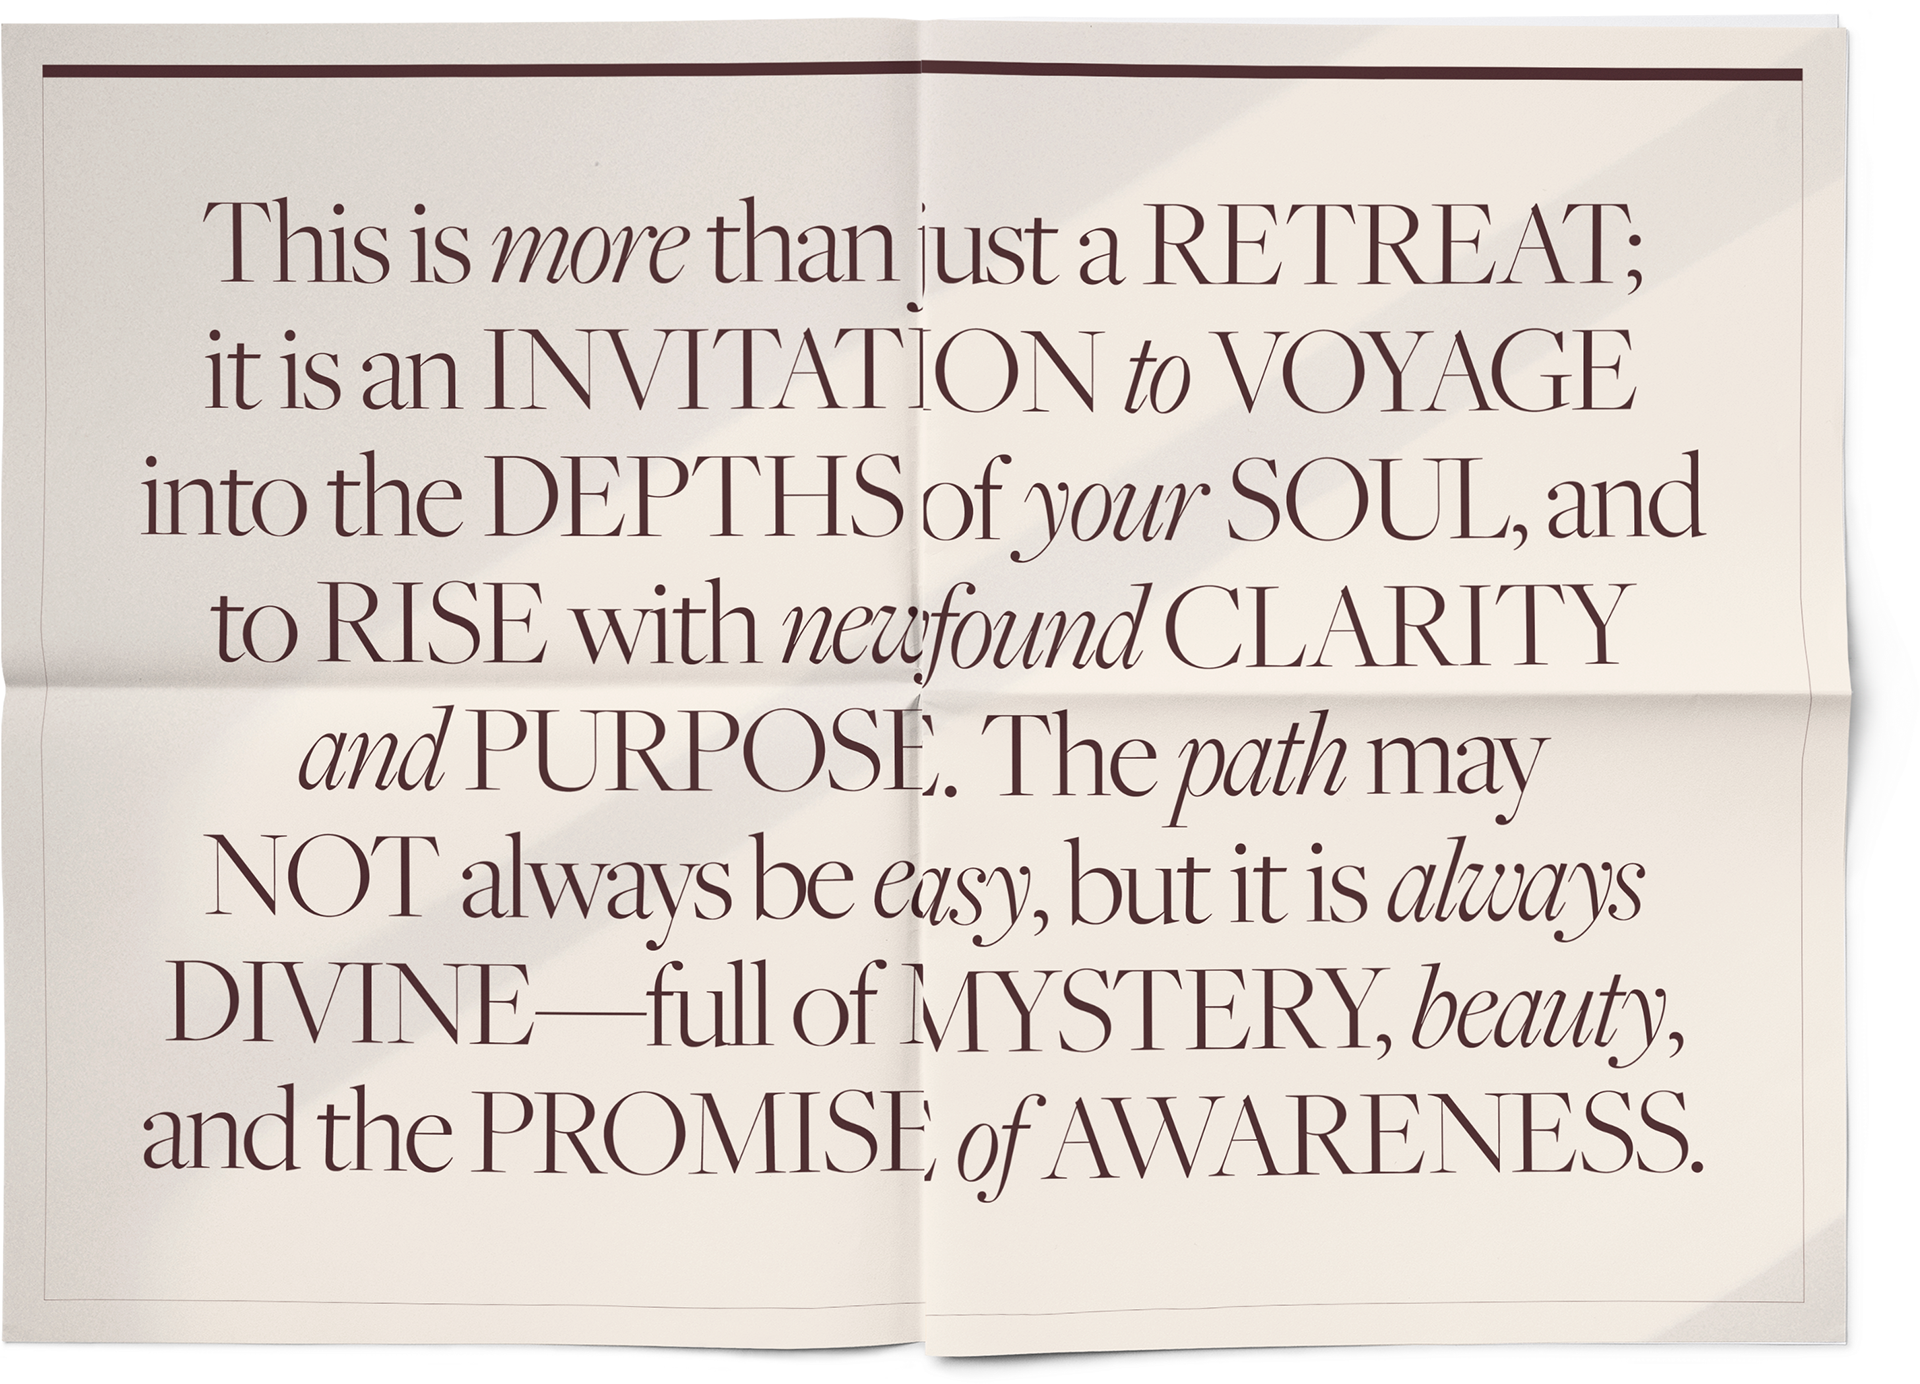 This is more than just a RETREAT;
it is an INVITATION to VOYAGE
into the DEPTHS of your SOUL, and
to RISE with newfound CLARITY
and PURPOSE. The path may
NOT always be easy, but it is always
DIVINE—full of MYSTERY, beauty,
and the PROMISE of AWARENESS.